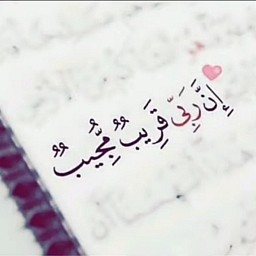 إِنَّ رَبِّىّ قَرِيبٌ مُّجِيبٌ